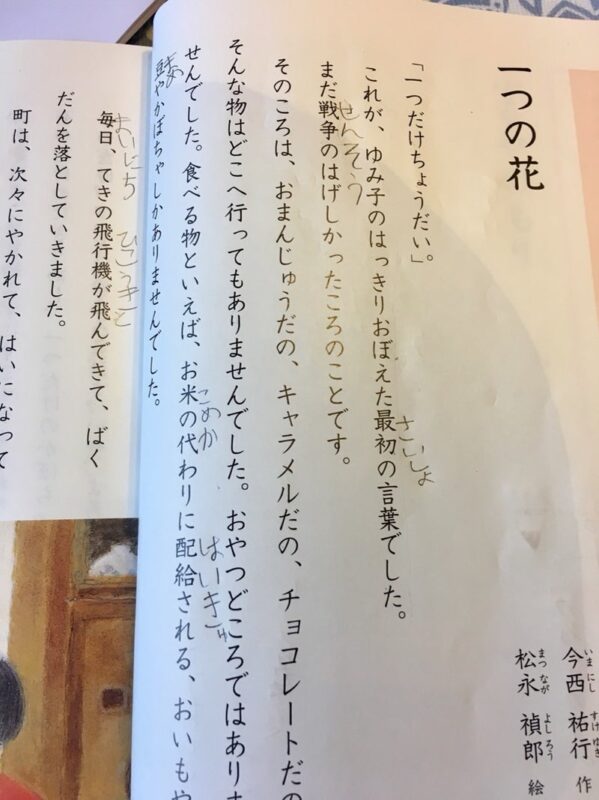 一つの花
いまにし すけゆき
今西 祐行 作
まつなが よしろう
松永 禎郎 絵
「一つだけちょうだい。」
さいしょ
これが、ゆみ子のはっきりおぼえた最初の言葉でした。
せんそう
まだ戦争のはげしかったころのことです。
そのころは、おまんじゅうだの、キャラメルだの、チョコレートだの
そんな物はどこへ行ってもありませんでした。おやつどころではありま
こめ か はいきゅ
せんでした。食べる物といえば、お米の代わりに配給される、おいもや
まめ
豆やかぼちゃしかありませんでした。
まいにち ひこうき と
毎日、てきの飛行機が飛んできて、ばく
だんを落としていきました。
町は、次々にやかれて、はいになって